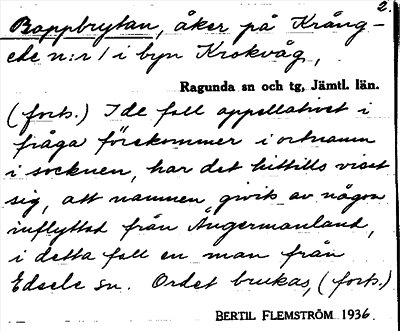 2.
Bappbrytan, åker på Krång-
ede n:r 1 i byn Krokvåg,
Ragunda sn och tg, Jämtl. län.
(forts.) I de fall appellativet i
fråga förekommer i ortnamn
i socknen, har det hittills visat
sig, att namnen givits av någon
inflyttad från Ångermanland,
i detta fall en man från
Edsele sn. Ordet brukas, (forts.)
BERTIL FLEMSTRÖM 1936.